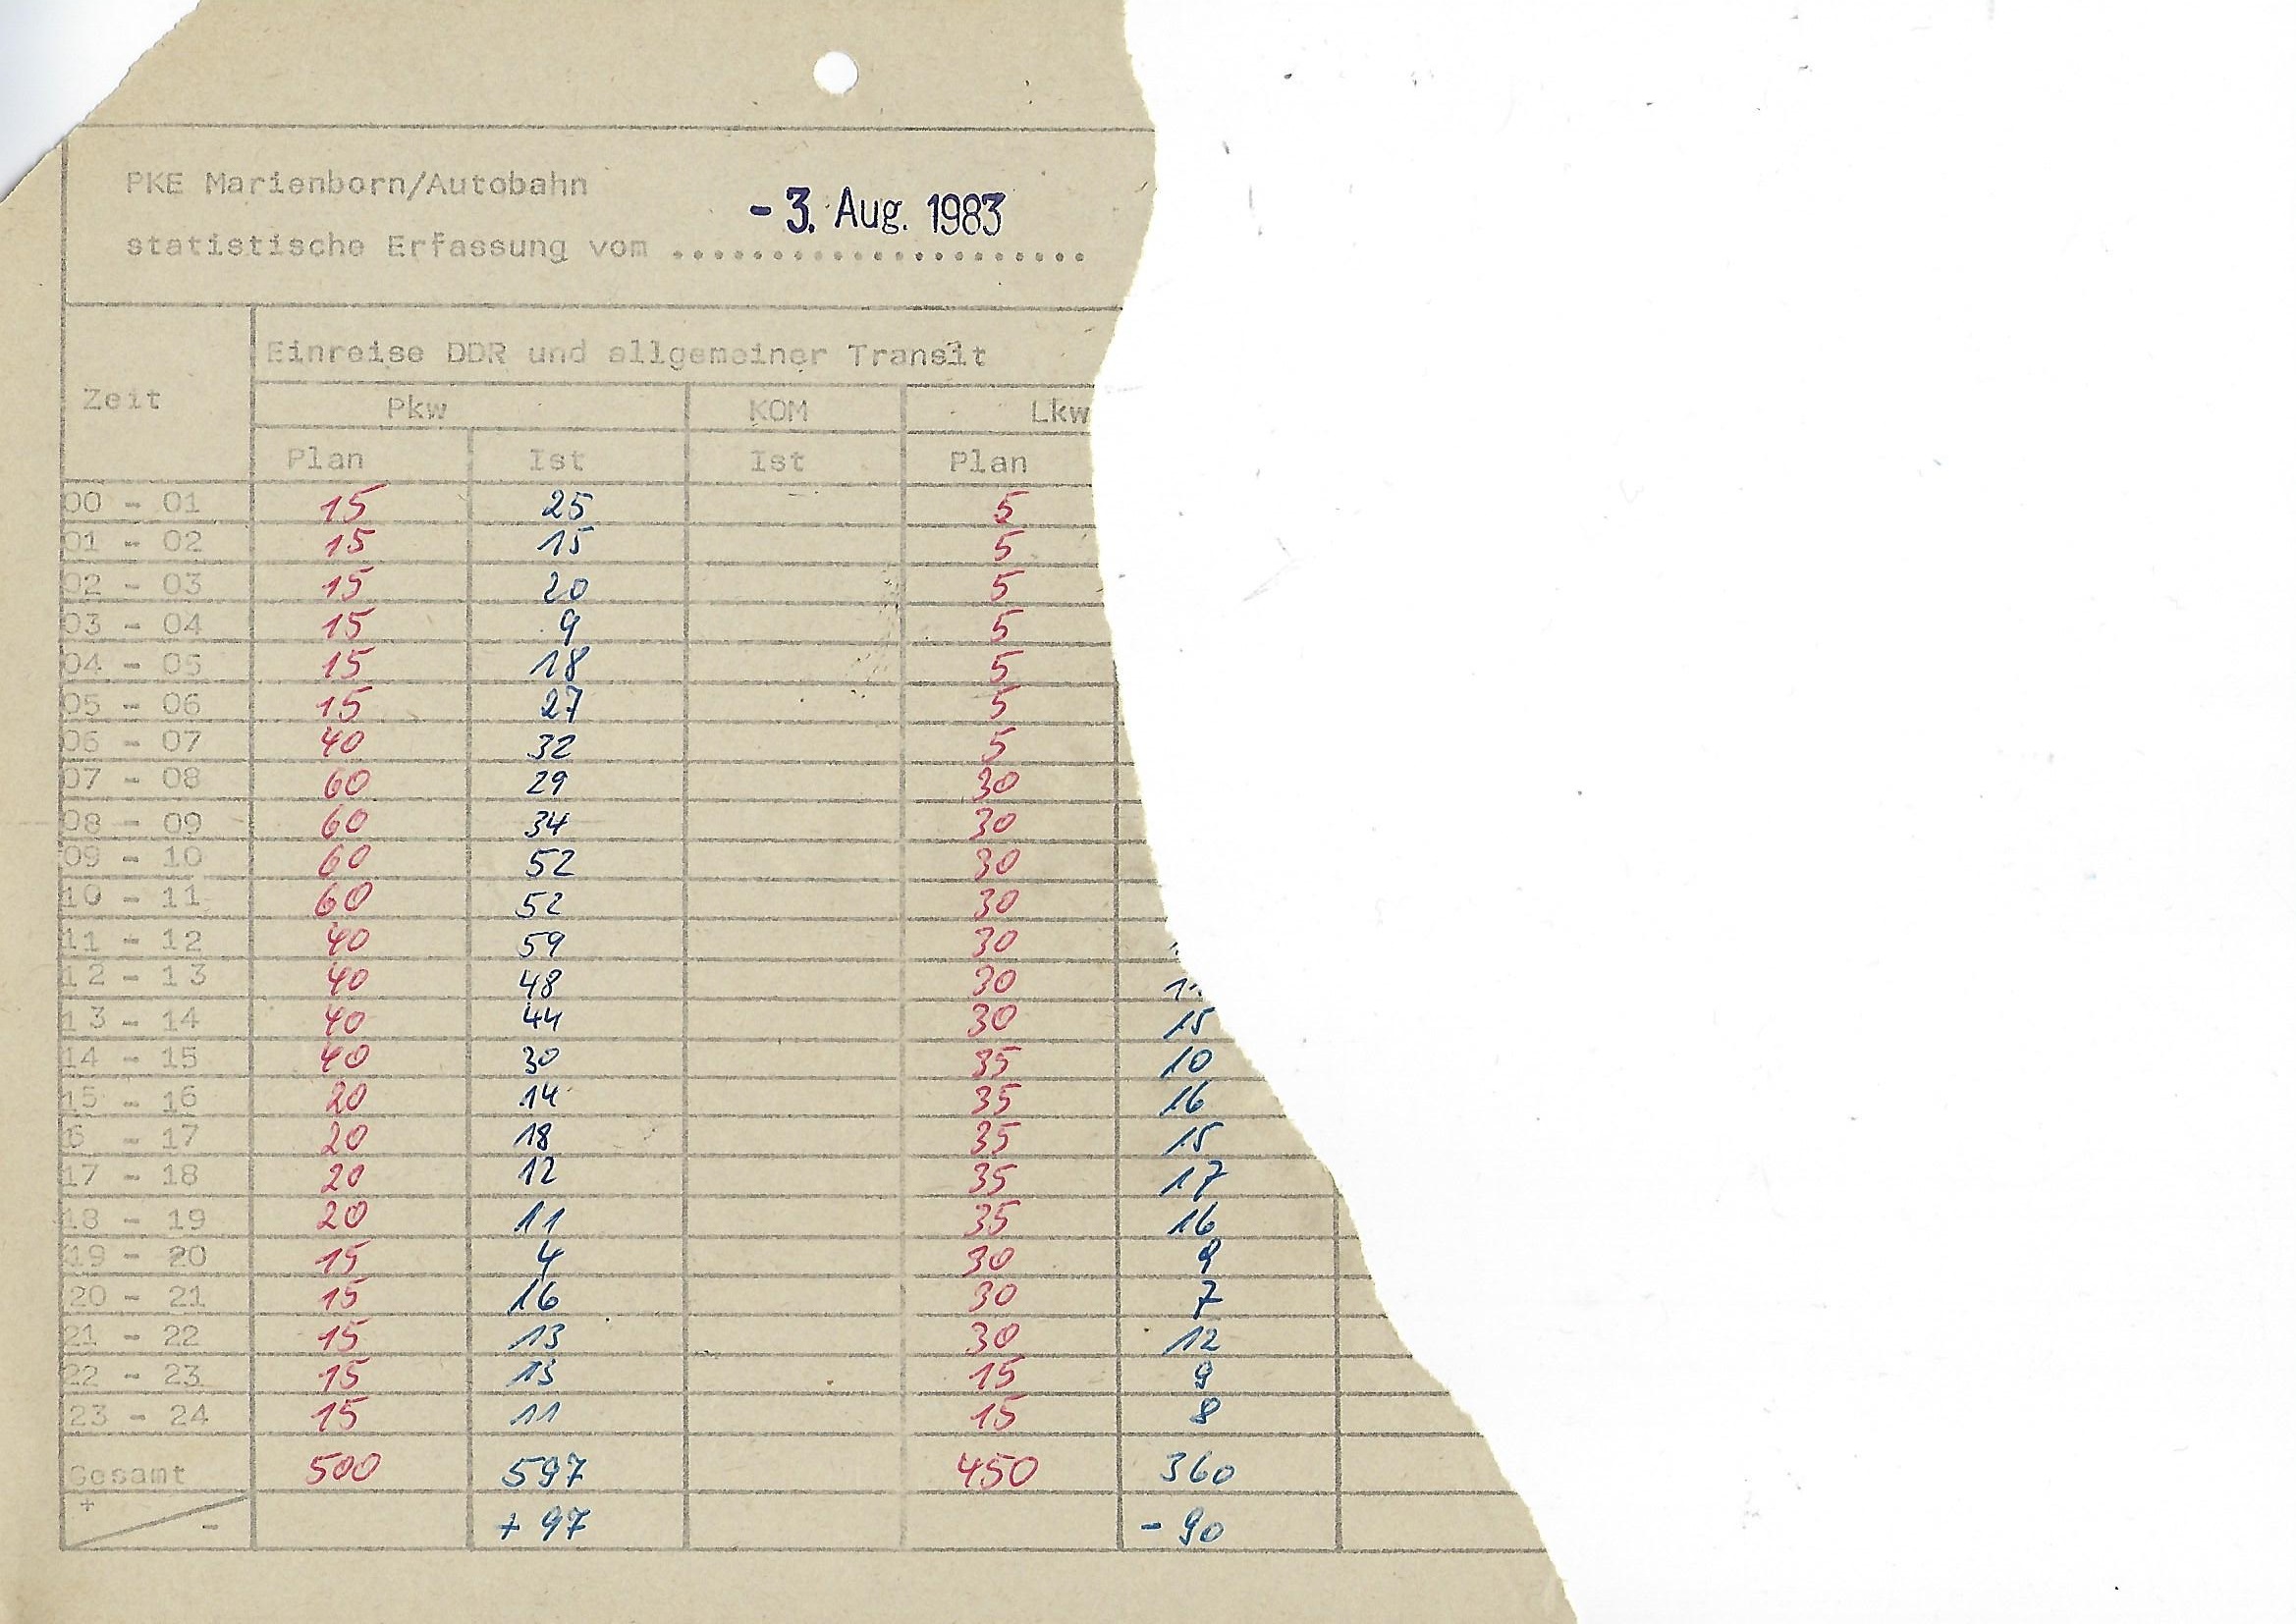 PKE Marienborn/Autobahn
- 3. Aug. 1983
statistische Erfassung vom ......................
Einreise DDR und allgemeiner Transit
Zeit Pkw KOM Lkw
Plan Ist Ist Plan
00 - 01 15 25 5
01 - 02 15 15 5
02 - 03 15 20 5
03 - 04 15 9 5
04 - 05 15 18 5
05 - 06 15 27 5
06 - 07 40 32 5
07 - 08 60 29 30
08 - 09 60 34 30
09 - 10 60 52 30
10 - 11 60 52 30
11 - 12 40 59 30
12 - 13 40 48 30
13 - 14 40 44 30 15
14 - 15 40 30 35 10
15 - 16 20 14 35 16
6 - 17 20 18 35 15
17 - 18 20 12 35 17
18 - 19 20 11 35 16
19 - 20 15 4 30 9
20 - 21 15 16 30 7
21 - 22 15 13 30 12
22 - 23 15 13 15 9
23 - 24 15 11 15 8
Gesamt 500 597 450 360
+ - + 97 - 90